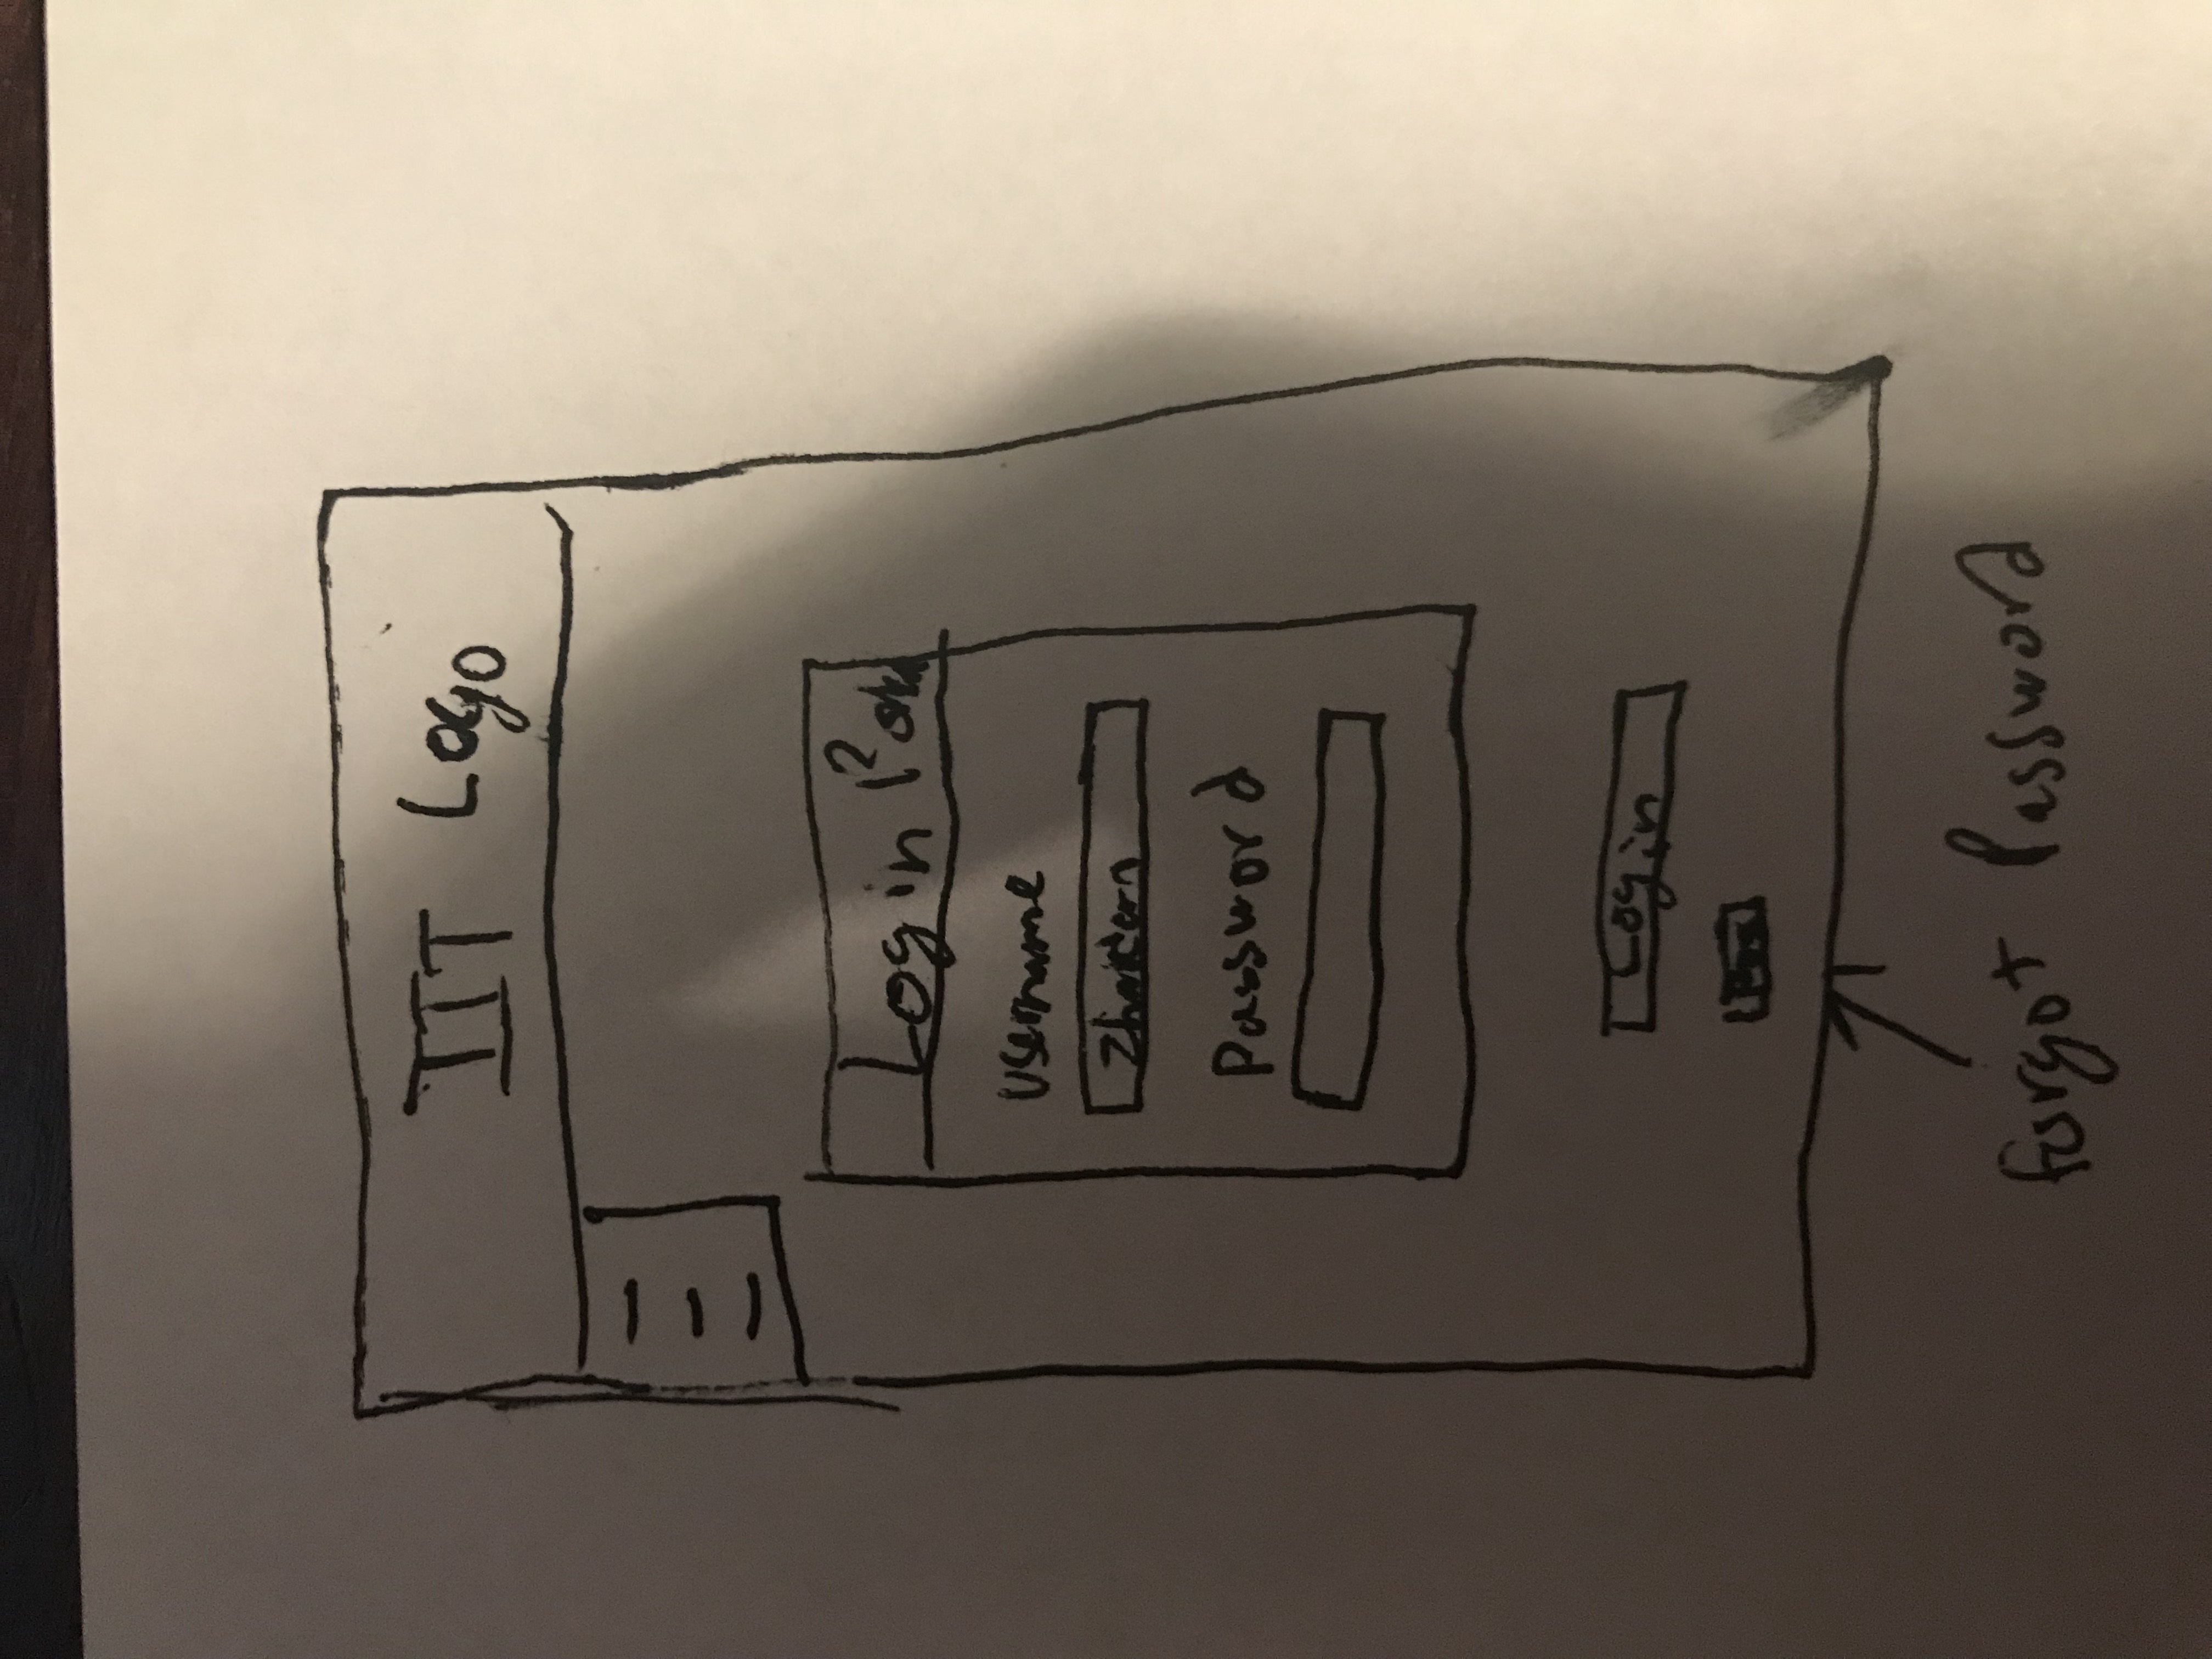 IIT Logo
Login Portal
Username
Password
Login
forgot Password